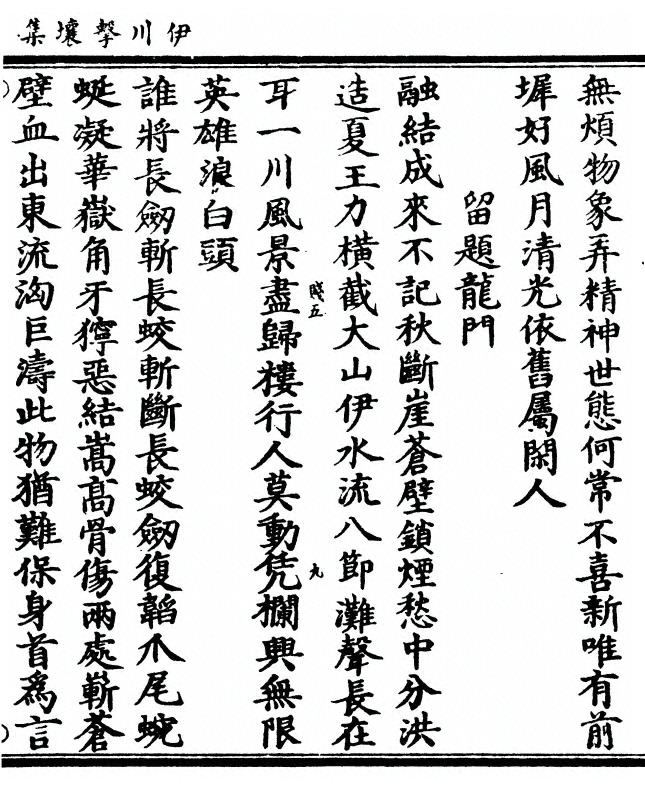 伊川擊壤集
無煩物象弄精神世態何常不喜新唯有前
墀好風月清光依舊屬閑人
留題龍門
融結成來不記秋斷崖蒼壁鎖煙愁中分洪
造夏王力橫截大山伊水流八節灘聲長在
耳一川風景盡歸樓行人莫動凭欄興無限
英雄浪白頭
誰將長劒斬長蛟斬斷長蛟劒復韜爪尾蜿
蜒凝華嶽角牙獰惡結嵩高骨傷兩處嶄蒼
壁血出東流洶巨濤此物猶難保身首爲言